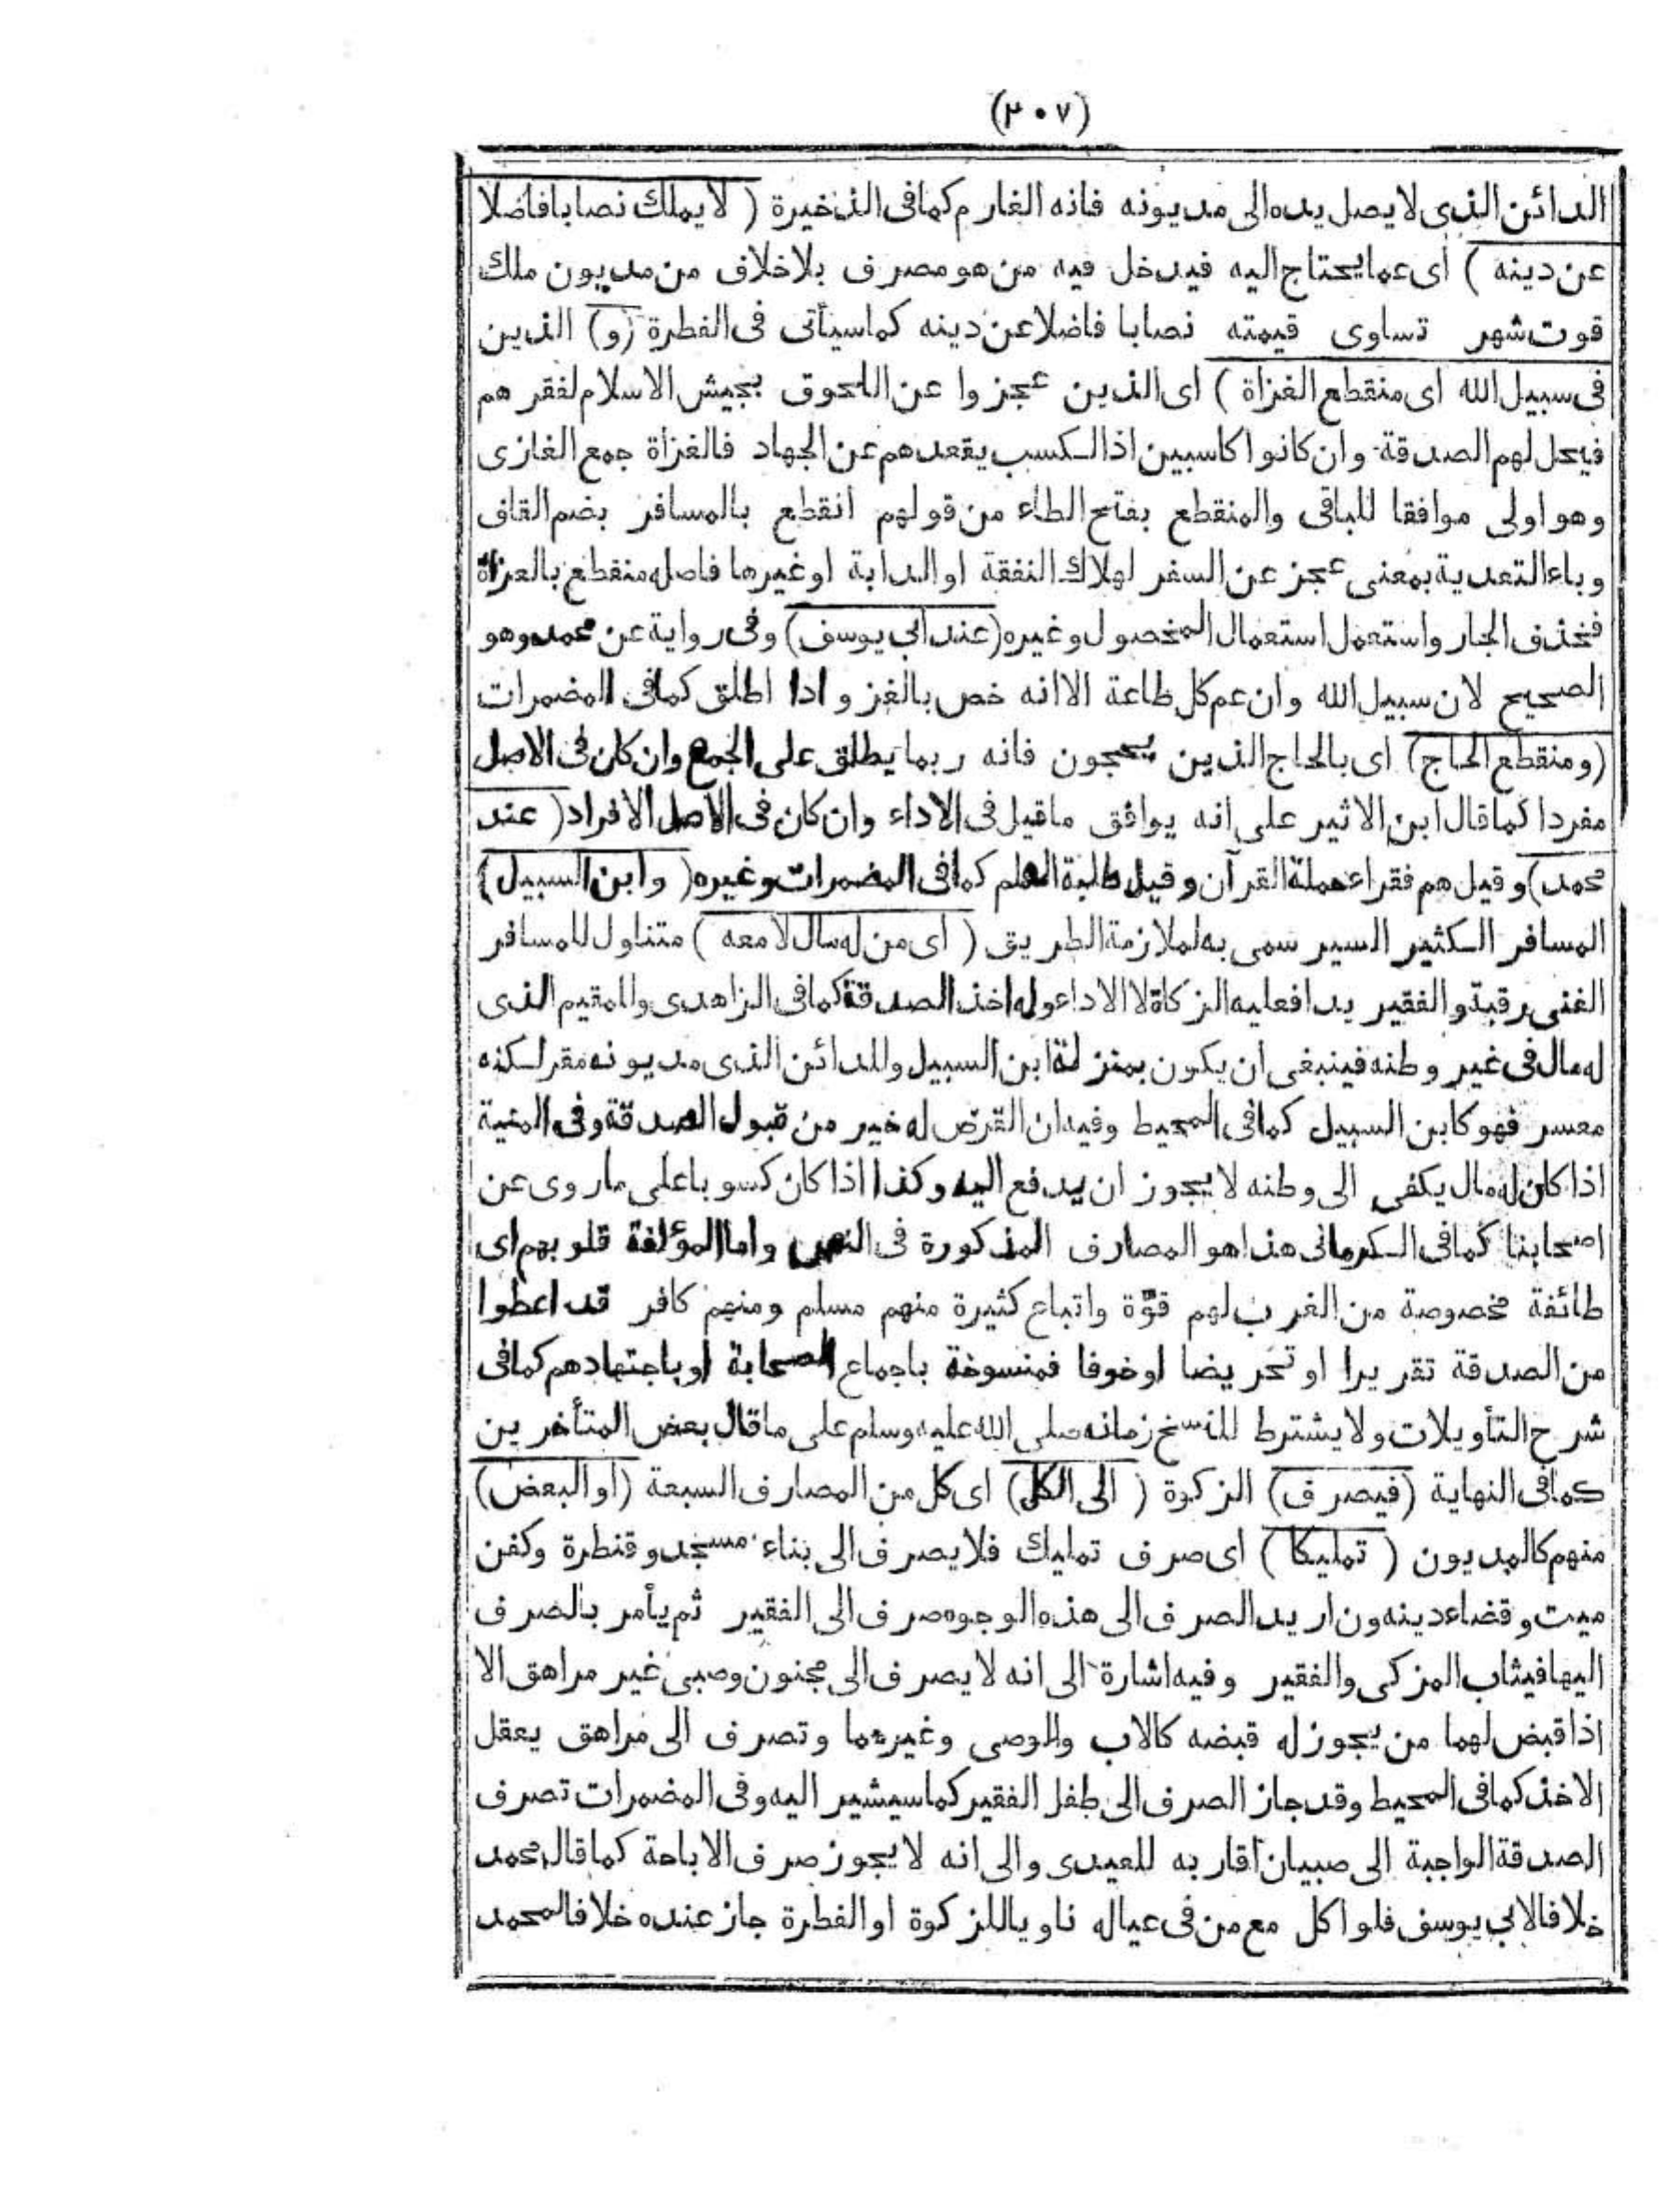 (٣٠٧)
الدائن الذى لا يصل يده الى مديونه فانه الغارم كما فى الذخيرة ( لا يملك نصابا فاضلا
عن دينه ) اى عما يحتاج اليه فيدخل فيه من هو مصرف بلا خلاف من مديون ملك
قوت شهر تساوى قيمته نصابا فاضلا عن دينه كما سيأتى فى الفطرة (و) الذين
فى سبيل الله اى منقطع الغزاة ) اى الذين عجزوا عن اللحوق بجيش الاسلام لفقرهم
فيحل لهم الصدقة وان كانوا كاسبين اذ الكسب يقعدهم عن الجهاد فالغزاة جمع الغازى
وهو اولى موافقا للباقى والمنقطع بفتح الطاء من قولهم انقطع بالمسافر بضم القاف
وباء التعدية بمعنى عجز عن السفر لهلاك النفقة او الدابة او غيرها فاصله منقطع بالغزاة
فحذف الجار واستعمل استعمال المخصول وغيره (عند ابى يوسف) وفى رواية عن محمد وهو
الصحيح لان سبيل الله وان عم كل طاعة الا انه خص بالغزو اذا اطلق كما فى المضمرات
(ومنقطع الحاج) اى بالحاج الذين يحجون فانه ربما يطلق على الجمع وان كان فى الاصل
مفردا كما قال ابن الاثير على انه يوافق ما قيل فى الاداء وان كان فى الاصل الافراد ( عند
محمد) وقيل هم فقراء حملة القرآن وقيل طلبة العلم كما فى المضمرات وغيره ( وابن السبيل)
المسافر الكثير السير سمى به لملازمة الطريق ( اى من له مال لا معه ) متناول للمسافر
الغنى رقبة والفقير يدا فعليه الزكاة لا الاداء وله اخذ الصدقة كما فى الزاهدى والمقيم الذى
له مال فى غير وطنه فينبغى ان يكون بمنزلة ابن السبيل وللدائن الذى مديونه مقر لكنه
معسر فهو كابن السبيل كما فى المحيط وفيه ان القرض له خير من قبول الصدقة وفى المنية
اذا كان له مال يكفى الى وطنه لا يجوز ان يدفع اليه وكذا اذا كان كسوبا على ما روى عن
اصحابنا كما فى الكرمانى هذا هو المصارف المذكورة فى النص واما المؤلفة قلوبهم اى
طائفة مخصوصة من العرب لهم قوّة واتباع كثيرة منهم مسلم ومنهم كافر قد اعطوا
من الصدقة تقريرا او تحريضا او خوفا فمنسوخة باجماع الصحابة او باجتهادهم كما فى
شرح التأويلات ولا يشترط للنسخ زمانه صلى الله عليه وسلم على ما قال بعض المتأخرين
كما فى النهاية (فيصرف) الزكوة ( الى الكل) اى كل من المصارف السبعة (او البعض)
منهم كالمديون ( تمليكا ) اى صرف تمليك فلا يصرف الى بناء مسجد وقنطرة وكفن
ميت وقضاء دينه ون اريد الصرف الى هذه الوجوه صرف الى الفقير ثم يأمر بالصرف
اليها فيثاب المزكى والفقير وفيه اشارة الى انه لا يصرف الى مجنون وصبى غير مراهق الا
اذا قبض لهما من يجوز له قبضه كالاب والوصى وغيرهما وتصرف الى مراهق يعقل
الاخذ كما فى المحيط وقد جاز الصرف الى طفل الفقير كما سيشير اليه وفى المضمرات تصرف
الصدقة الواجبة الى صبيان اقاربه للعيدى والى انه لا يجوز صرف الاباحة كما قال محمد
خلافا لابى يوسف فلو اكل مع من فى عياله ناويا للزكوة او الفطرة جاز عنده خلافا لمحمد